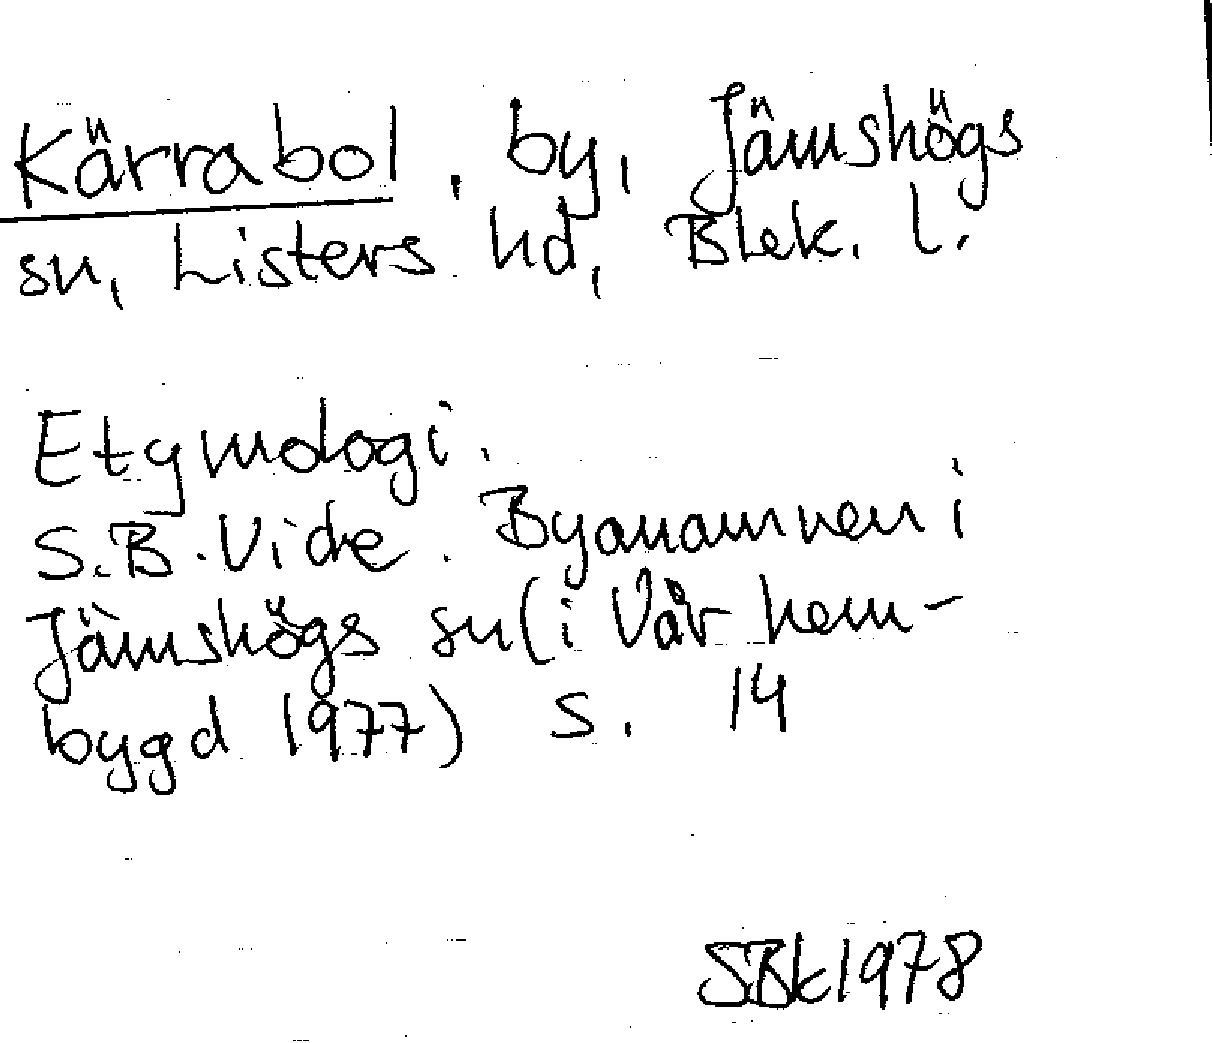 Kärrabol, by, Jämshögs
sn, Listers hd, Blek. l.
Etymologi.
S.B. Vide. Byanamnen i
Jämshögs sn (i Vår hem-
bygd 1977) s. 14
SBk 1978